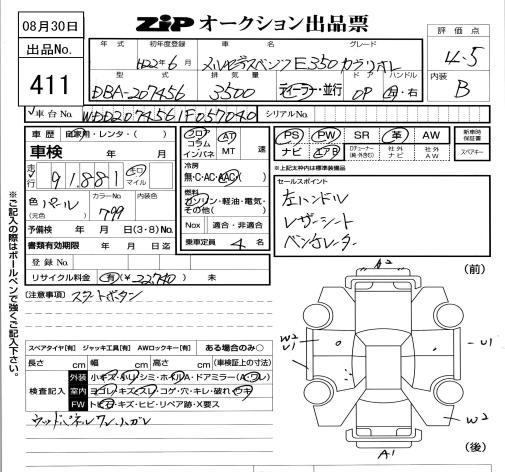 08月30日
ZIP オークション出品票
出品No.
411
評価点
4.5
内装
B
年式 初年度登録 車名 グレード
H22年6月 メルセデスベンツE350カブリオレ
型式 排気量 ドア ハンドル
DBA-207456 3500 ディーラー・並行 2D 左・右
車台No. WDD2074561F057040 シリアルNo.
車歴 自家用・レンタ・( )
車検 年 月
走行 91,881 キロ マイル
色 パール カラーNo. 799 内装色
(元色)
予備検 年 月 日(3・8)No.
書類有効期限 年 月 日迄
登録No.
リサイクル料金 有(¥22740) 未
フロア コラム インパネ
AT MT 速
冷房 無・C・AC・AAC
燃料 ガソリン・軽油・電気・その他( )
Nox 適合・非適合
乗車定員 4 名
PS PW SR 革 AW
ナビ エアB Dチューナー(純・社外) 社外ナビ 社外AW
新車時保証書
スペアキー
*上記太枠内は標準装備品
セールスポイント
左ハンドル
レザーシート
ベンチレーター
[注意事項] スタートボタン
スペアタイヤ[有] ジャッキ工具[有] AWロックキー[有] ある場合のみ〇
長さ cm 幅 cm 高さ cm (車検証上の寸法)
検査記入
外装 小キズ・小U・シミ・ホイルA・ドアミラー(A・ワレ)
室内 ヨゴレ・キズ・スレ・コゲ・穴・キレ・破れ・ウキ
FW トビ石・キズ・ヒビ・リペア跡・X要ス
ウッドパネルワレ、ハガレ
※ご記入の際はボールペンで強くご記入下さい。
(前)
A2
W2
U1
U1
W2
A1
(後)